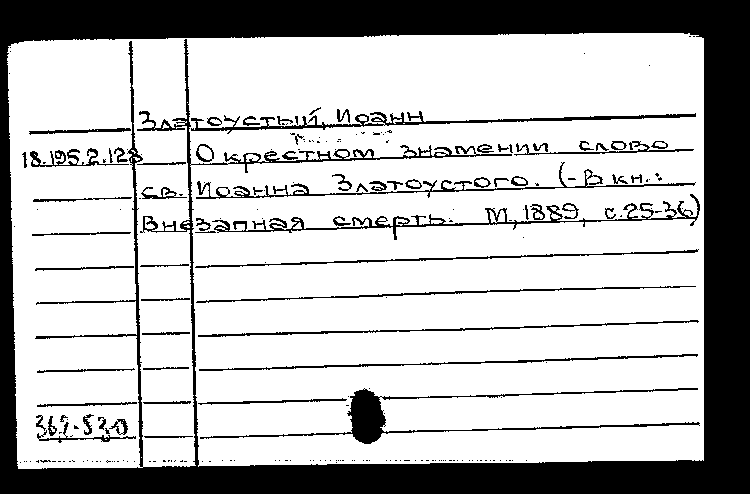 Златоустый, Иоанн
18.195.2.128 О крестном знамении слово
св. Иоанна Златоустого. (-В кн.:
Внезапная смерть. М, 1889, с.25-36)